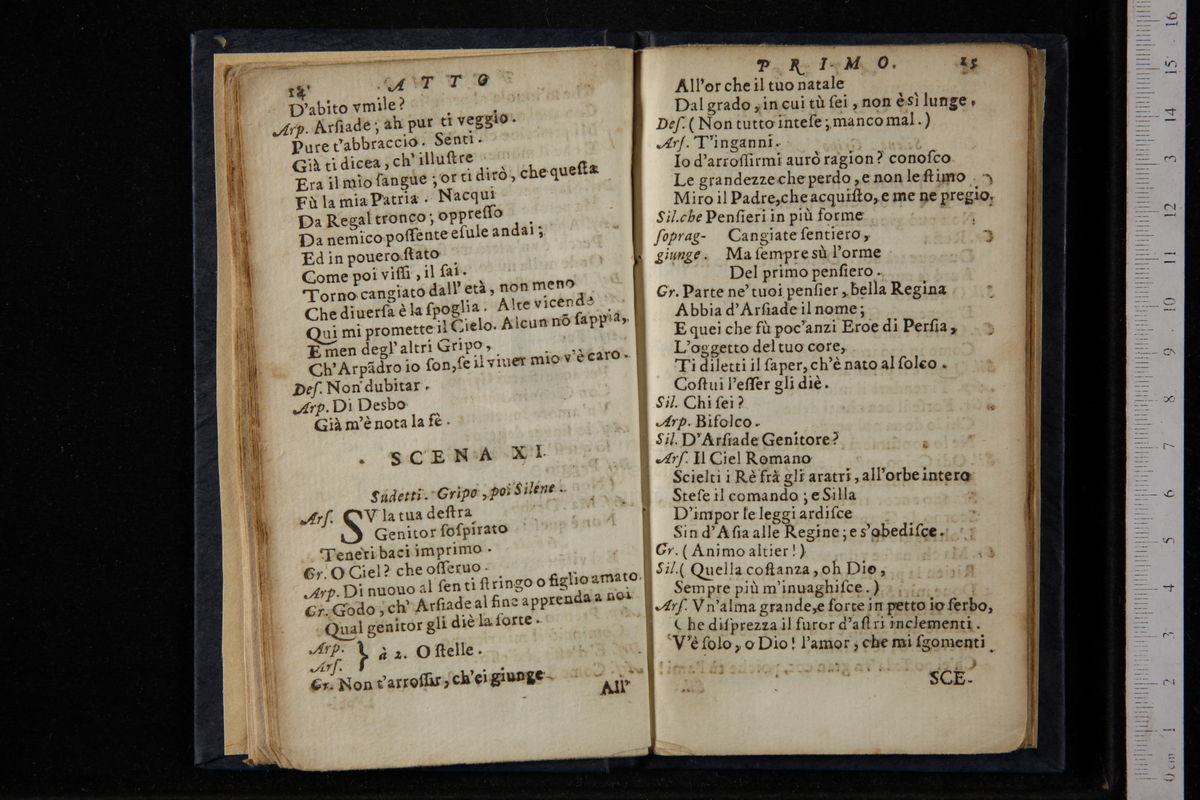 14 ATTO
D'abito vmile?
Arp. Arſiade; ah pur ti veggio.
Pure t'abbraccio. Senti.
Già ti dicea, ch' illuſtre
Era il mio ſangue; or ti dirò, che queſta
Fù la mia Patria. Nacqui
Da Regal tronco; oppreſſo
Da nemico poſſente eſule andai;
Ed in pouero ſtato
Come poi viſſi, il ſai.
Torno cangiato dall' età, non meno
Che diuerſa è la ſpoglia. Alte vicende
Qui mi promette il Cielo. Alcun nõ ſappia,
E men degl' altri Gripo,
Ch' Arpãdro io ſon, ſe il viuer mio v'è caro.
Deſ. Non dubitar.
Arp. Di Desbo
Già m'è nota la fè.
SCENA XI.
Sudetti. Gripo, poi Silene.
Arſ. SV la tua deſtra
Genitor ſoſpirato
Teneri baci imprimo.
Gr. O Ciel? che oſſeruo.
Arp. Di nuouo al ſen ti ſtringo o figlio amato.
Gr. Godo, ch' Arſiade al fine apprenda a noi
Qual genitor gli diè la ſorte.
Arp. } à 2. O ſtelle.
Arſ.
Gr. Non t'arroſſir, ch'ei giunge
All'
PRIMO. 15
All'or che il tuo natale
Dal grado, in cui tù ſei, non è sì lunge.
Deſ. (Non tutto inteſe; manco mal.)
Arſ. T'inganni.
Io d'arroſſirmi aurò ragion? conoſco
Le grandezze che perdo, e non le ſtimo
Miro il Padre, che acquiſto, e me ne pregio.
Sil. che Penſieri in più forme
ſoprag- Cangiate ſentiero,
giunge. Ma ſempre sù l'orme
Del primo penſiero.
Gr. Parte ne' tuoi penſier, bella Regina
Abbia d'Arſiade il nome;
E quei che fù poc'anzi Eroe di Perſia,
L'oggetto del tuo core,
Ti diletti il ſaper, ch'è nato al ſolco.
Coſtui l'eſſer gli diè.
Sil. Chi ſei?
Arp. Bifolco.
Sil. D'Arſiade Genitore?
Arſ. Il Ciel Romano
Scielti i Rè frà gli aratri, all'orbe intero
Steſe il comando; e Silla
D'impor le leggi ardiſce
Sin d'Aſia alle Regine; e s'obediſce.
Gr. (Animo altier!)
Sil. (Quella coſtanza, oh Dio,
Sempre più m'inuaghiſce.)
Arſ. Vn'alma grande, e forte in petto io ſerbo,
Che diſprezza il furor d'aſtri inclementi.
V'è ſolo, o Dio! l'amor, che mi ſgomenti.
SCE-
0 cm 1 2 3 4 5 6 7 8 9 10 11 12 13 14 15 16